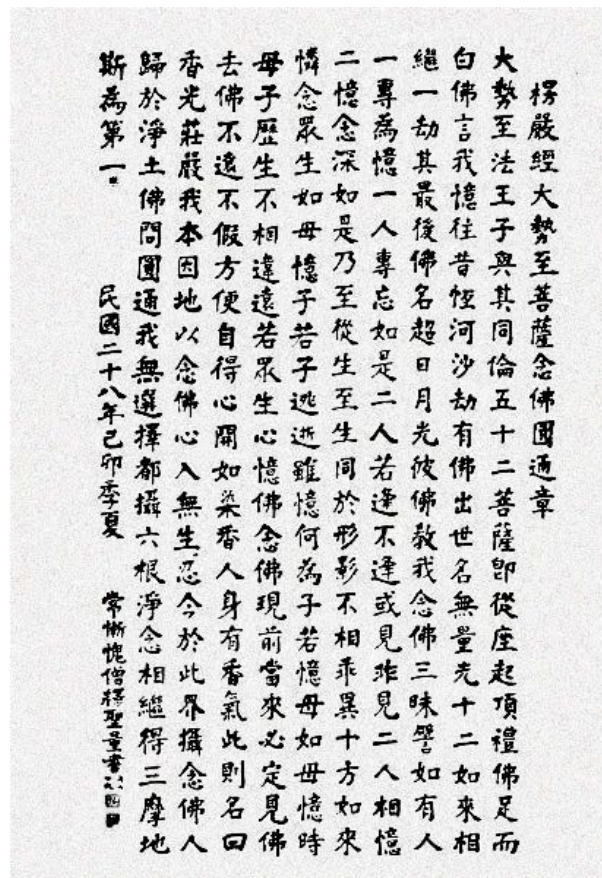 楞嚴經大勢至菩薩念佛圓通章
大勢至法王子與其同倫五十二菩薩卽從座起頂禮佛足而
白佛言我憶往昔恆河沙劫有佛出世名無量光十二如來相
繼一劫其最後佛名超日月光彼佛教我念佛三昧譬如有人
一專為憶一人專忘如是二人若逢不逢或見非見二人相憶
二憶念深如是乃至從生至生同於形影不相乖異十方如來
憐念眾生如母憶子若子逃逝雖憶何為子若憶母如母憶時
母子歷生不相違遠若眾生心憶佛念佛現前當來必定見佛
去佛不遠不假方便自得心開如染香人身有香氣此則名曰
香光莊嚴我本因地以念佛心入無生忍今於此界攝念佛人
歸於淨土佛問圓通我無選擇都攝六根淨念相繼得三摩地
斯為第一 民國二十八年己卯季夏 常慚愧僧釋聖量書